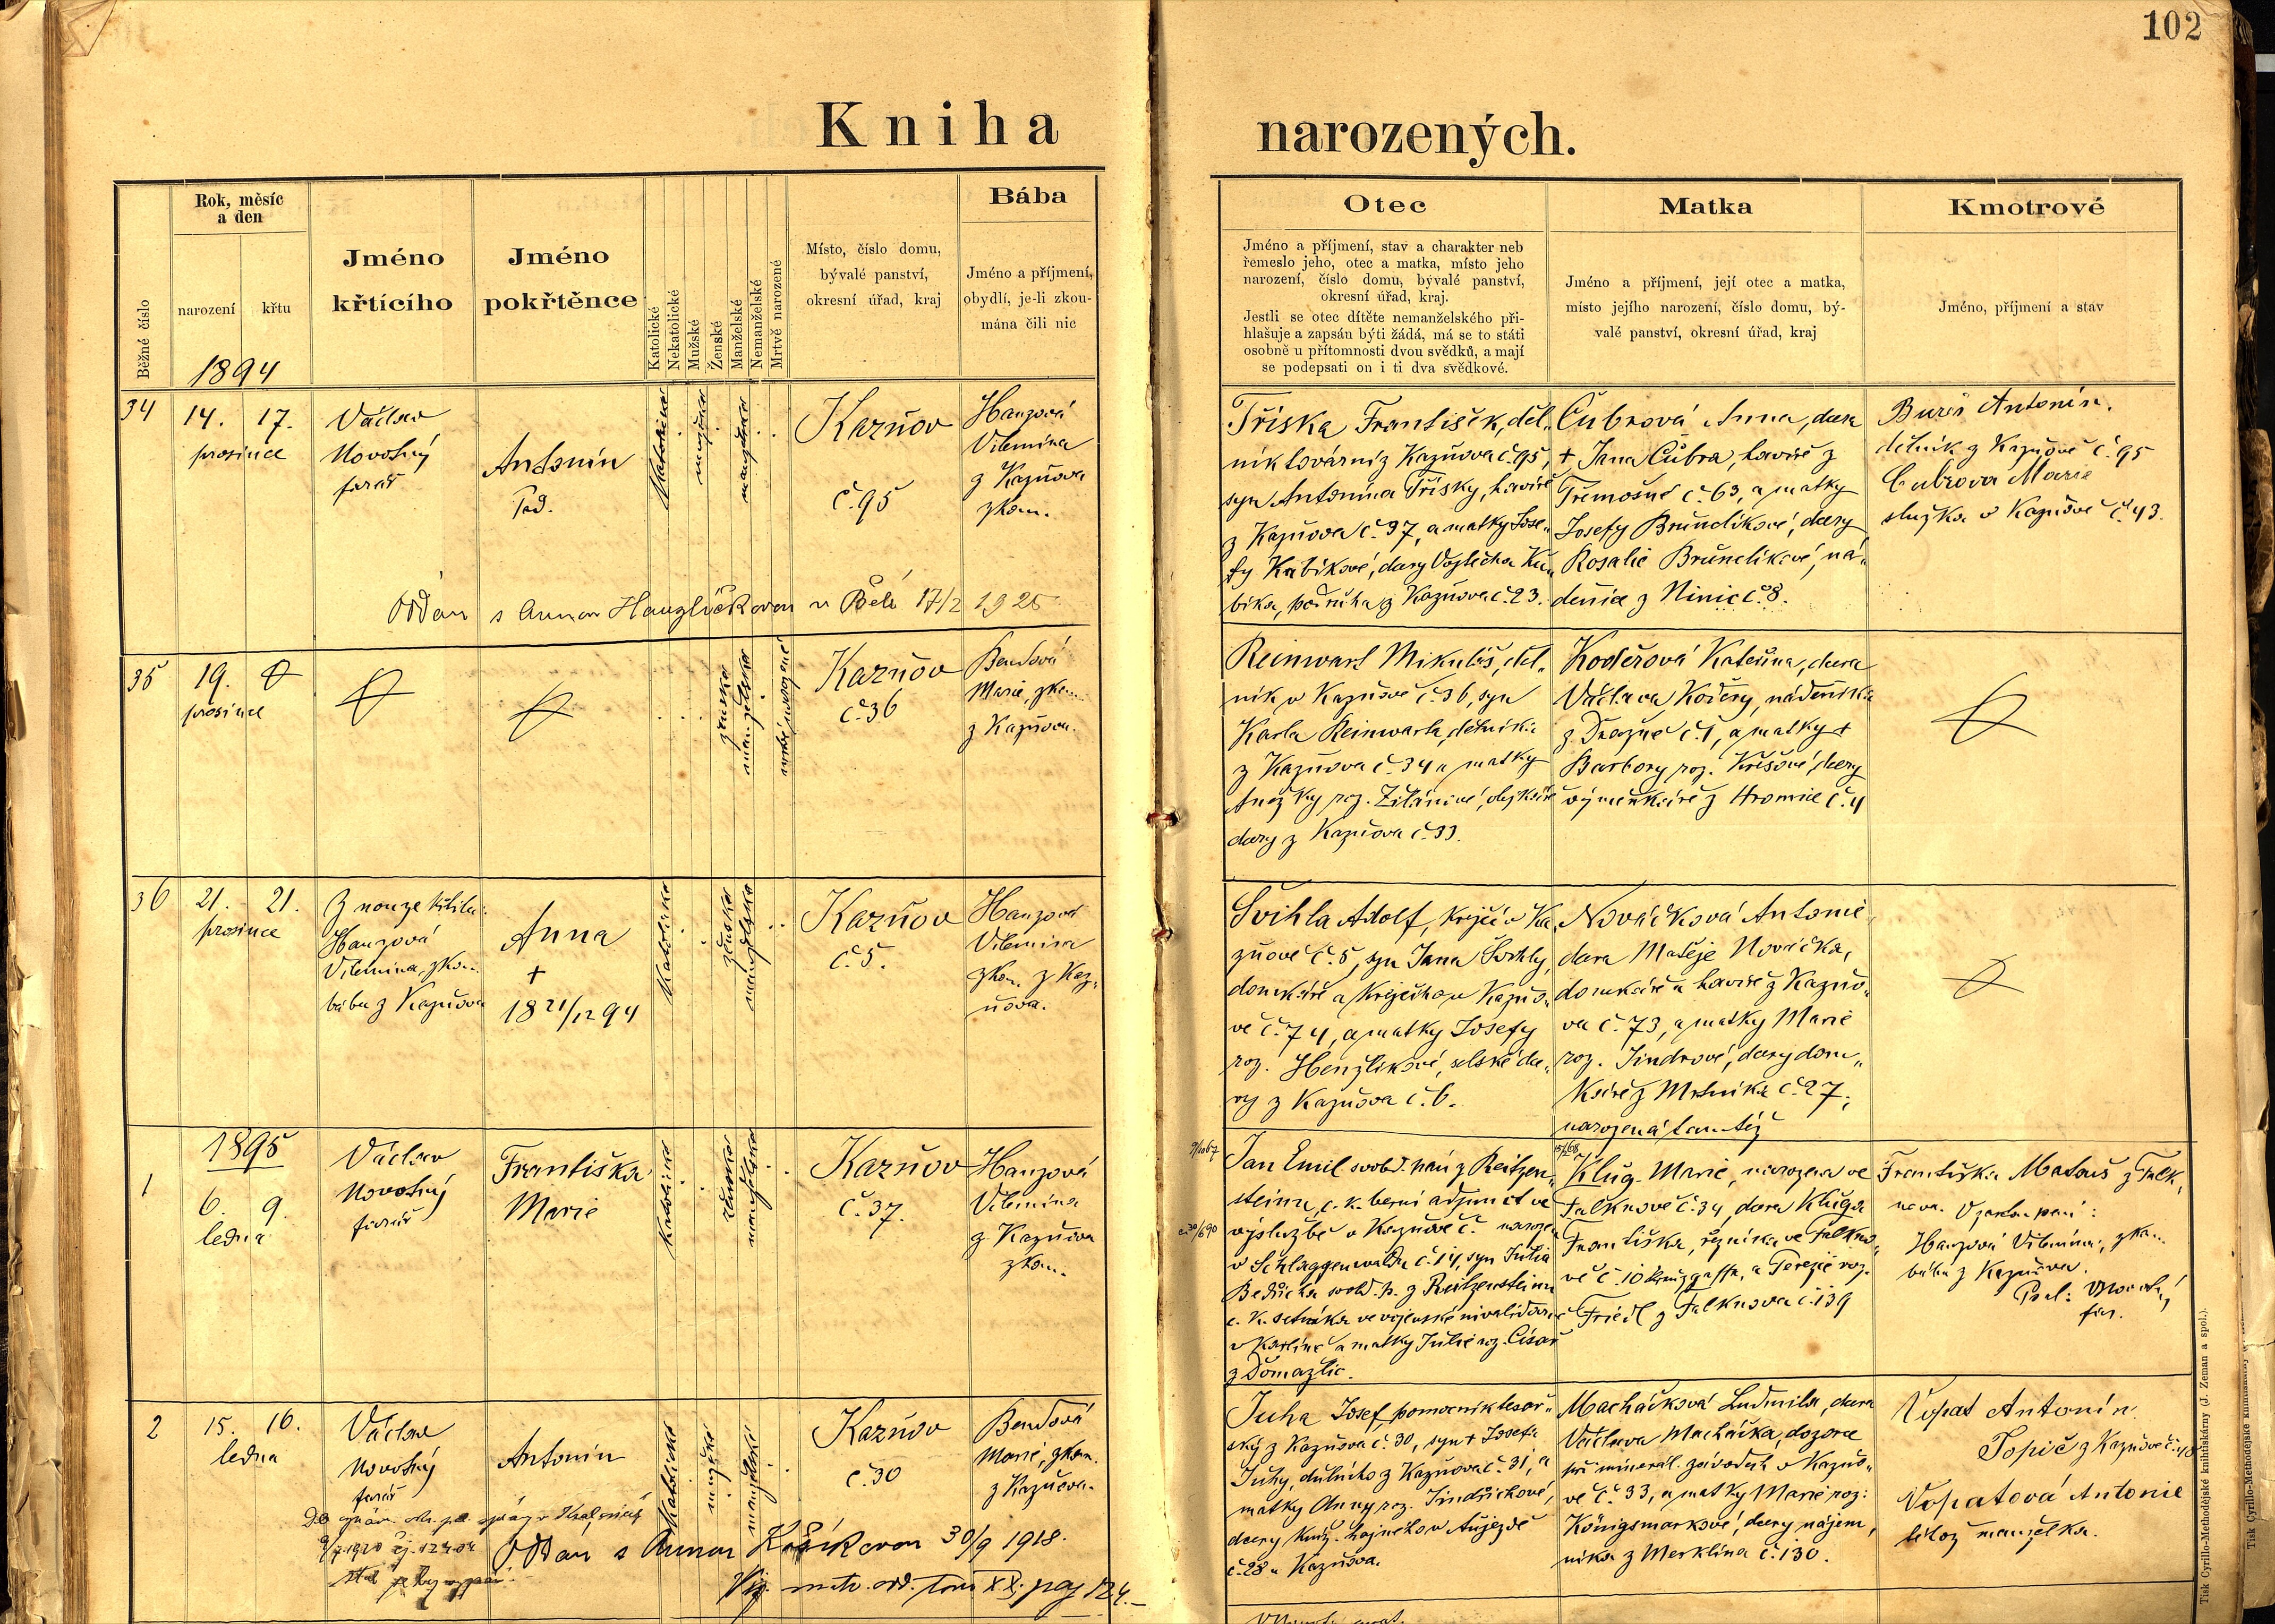 102
Kniha narozených.
Běžné číslo
Rok, měsíc
a den
narození
křtu
1894
Jméno
křtícího
Jméno
pokřtěnce
Katolické
Nekatolické
Mužské
Ženské
Manželské
Nemanželské
Mrtvě narozené
Místo, číslo domu,
bývalé panství,
okresní úřad, kraj
Bába
Jméno a příjmení,
obydlí, je-li zkou-
mána čili nic
Otec
Jméno a příjmení, stav a charakter neb
řemeslo jeho, otec a matka, místo jeho
narození, číslo domu, bývalé panství,
okresní úřad, kraj.
Jestli se otec dítěte nemanželského při-
hlašuje a zapsán býti žádá, má se to státi
osobně u přítomnosti dvou svědků, a mají
se podepsati on i ti dva svědkové.
Matka
Jméno a příjmení, její otec a matka,
místo jejího narození, číslo domu, bý-
valé panství, okresní úřad, kraj
Kmotrové
Jméno, příjmení a stav
34
14. 17.
prosince
Václav
Novotný
farář
Antonín
Katolické
mužské
manželské
Kazňov
č. 95
Hauzová
Vilemína
z Kazňova
zkou.
Oddán s Annou Hauzlíčkovou v Bělé 17/2 1925
Tříska František, děl„
ník továrni z Kazňova č. 95,
syn Antonína Třísky, havíře
z Kazňova č. 37, a matky Jose„
fy Kubíkové, dcery Vojtěcha Ku„
bíka, podruha z Kazňova č. 23.
Čubrová Anna, dcera
+ Jana Čubra, havíře z
Třemošné č. 63, a matky
Josefy Brůnclíkové, dcery
Rosalie Brůnclíkové, ná„
denice z Ninic č. 8.
Bureš Antonín,
dělník z Kazňově č. 95
Čubrova Marie
služka v Kazňově č. 43.
35
19.
prosince
ženské
manželské
mrtvě narozené
Kazňov
č. 36
Bendová
Marie, zkou.
z Kazňova.
Reinwart Mikuláš, děl„
ník v Kazňově č. 36, syn
Karla Reinwarta, dělníka
z Kazňova č. 34 a matky
Anežky roz. dcery z Kazňova č. 33.
Kodērová Kateřina, dcera
Václava nádeníka
z Dražně č. 1, a matky +
Barbory roz. Křížové, dcery
výměnkáře z Hromnic č. 4
36
21. 21.
prosince
Z nouze křtila:
Hauzová
Vilemína, zkou.
bába z Kazňova
Anna
+
18 21/12 94
Katolické
ženské
manželské
Kazňov
č. 5.
Hauzová
Vilemína
zkou. z Kaz„
ňova.
Švihla Adolf, krejčí v Ka„
zňově č. 5, syn Jana Švihly,
domkáře a krejčího v Kazňo„
vě č. 74, a matky Josefy
roz. Henzlíkové, selské dce„
ry z Kazňova č. 6.
Nováčková Antonie,
dcera Matěje Nováčka,
domkáře a havíře z Kazňo„
va č. 73, a matky Marie
roz. Jindrové, dcery dom„
káře z Mrtníka č. 27,
narozená tamtéž
1895
1
6. 9.
ledna
Václav
Novotný
farář
Františka
Marie
Katolické
ženské
manželské
Kazňov
č. 37.
Hauzová
Vilemína
z Kazňova
zkou.
Jan Emil svobd. pán z Reitzen„
steinu, c. k. berní adjunct ve
výslužbě v Kazňově č. narozen
v Schlaggenwaldu č. 14, syn Julia
Bedřicha svobd. p. z Reitzensteinu
c. k. setníka ve vojenské invalidovně
v Karlíně a matky Julie roz. Císař
z Domažlic.
Klug Marie, narozena ve
Falknově č. 34, dcera Kluga
Františka, řezníka ve Falkno„
vě č. 10 Kreuzgasse, a Terezie roz.
Friedl z Falknova č. 139
Františka Matouš z Falk„
nova. V zastoupení:
Hauzová Vilemína, zkou.
bába z Kazňova.
Novotný
far.
2
15. 16.
ledna
Václav
Novotný
farář
Antonín
Katolické
mužské
manželské
Kazňov
č. 30
Bendová
Marie, zkou.
z Kazňova.
Oddán s Annou Košíkovou 30/9 1918.
Viz matr. odd. tom XX. pag 124.
Juha Josef, pomocník tesař„
ský z Kazňova č. 30, syn + Josefa
Juhy, dělníka z Kazňova č. 31, a
matky Anny roz. Jindřichové,
dcery v Aujezdě
č. 28 u Kazňova.
Macháčková Ludmila, dcera
Václava Macháčka, dozorce
při minerál. závodech v Kazňo„
vě č. 33, a matky Marie roz.
Königsmarkové, dcery nájem„
níka z Merklína č. 130.
Vopat Antonín
Topič z Kazňova č. 48
Vopatová Antonie
téhož manželka.
Tisk Cyrillo-Methodějské knihtiskárny (J. Zeman a spol.).